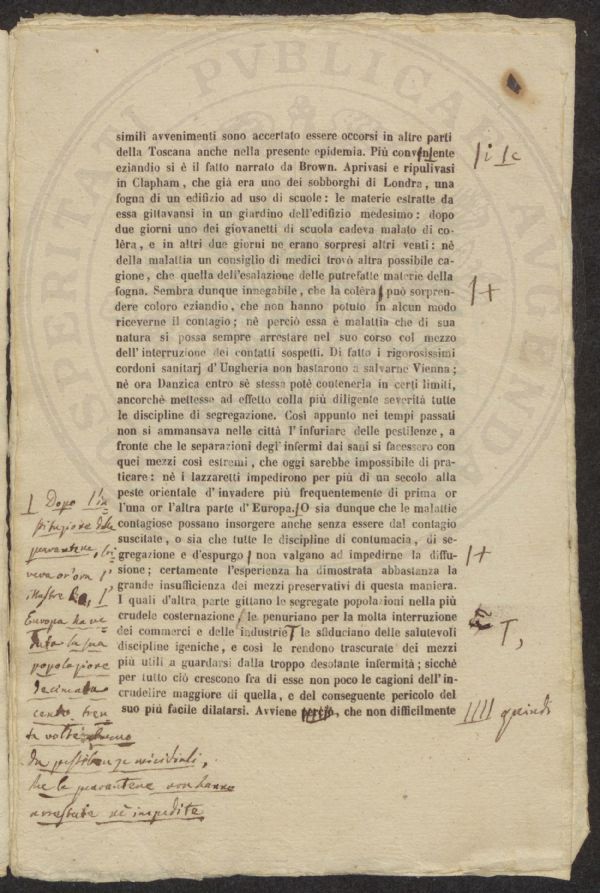 simili avvenimenti sono accertato essere occorsi in altre parti
della Toscana anche nella presente epidemia. Più conveniente
eziandio si è il fatto narrato da Brown. Aprivasi e ripulivasi
in Clapham, che già era uno dei sobborghi di Londra, una
fogna di un edifizio ad uso di scuole: le materie estratte da
essa gittavansi in un giardino dell'edifizio medesimo: dopo
due giorni uno dei giovanetti di scuola cadeva malato di co-
lèra, e in altri due giorni ne erano sorpresi altri venti: nè
della malattia un consiglio di medici trovò altra possibile ca-
gione, che quella dell'esalazione delle putrefatte materie della
fogna. Sembra dunque innegabile, che la colèra può sorpren-
dere coloro eziandio, che non hanno potuto in alcun modo
riceverne il contagio; nè perciò essa è malattia che di sua
natura si possa sempre arrestare nel suo corso col mezzo
dell'interruzione dei contatti sospetti. Di fatto i rigorosissimi
cordoni sanitarj d'Ungheria non bastarono a salvarne Vienna;
nè ora Danzica entro sè stessa potè contenerla in certi limiti,
ancorchè mettesse ad effetto colla più diligente severità tutte
le discipline di segregazione. Così appunto nei tempi passati
non si ammansava nelle città l'infuriare delle pestilenze, a
fronte che le separazioni degl'infermi dai sani si facessero con
quei mezzi così estremi, che oggi sarebbe impossibile di pra-
ticare: nè i lazzaretti impedirono per più di un secolo alla
peste orientale d'invadere più frequentemente di prima or
l'una or l'altra parte d'Europa. O sia dunque che le malattie
contagiose possano insorgere anche senza essere dal contagio
suscitate, o sia che tutte le discipline di contumacia, di se-
gregazione e d'espurgo non valgano ad impedirne la diffu-
sione; certamente l'esperienza ha dimostrata abbastanza la
grande insufficienza dei mezzi preservativi di questa maniera.
I quali d'altra parte gittano le segregate popolazioni nella più
crudele costernazione le penuriano per la molta interruzione
dei commerci e delle industrie le sfiduciano delle salutevoli
discipline igeniche, e così le rendono trascurate dei mezzi
più utili a guardarsi dalla troppo desolante infermità; sicchè
per tutto ciò crescono fra di esse non poco le cagioni dell'in-
crudelire maggiore di quella, e del conseguente pericolo del
suo più facile dilatarsi. Avviene perciò, che non difficilmente
i c
+
+
T,
quindi
Dopo l'in
stituzione delle
quarantene, scri
veva or'ora l'
illustre l'
Europa ha ve
duto la sua
popolazione
decimata
cento tren
ta volte
da pestilenze micidiali,
che le quarantene non hanno
arrestate nè impedite
PVBLICAE
AVGENDAE